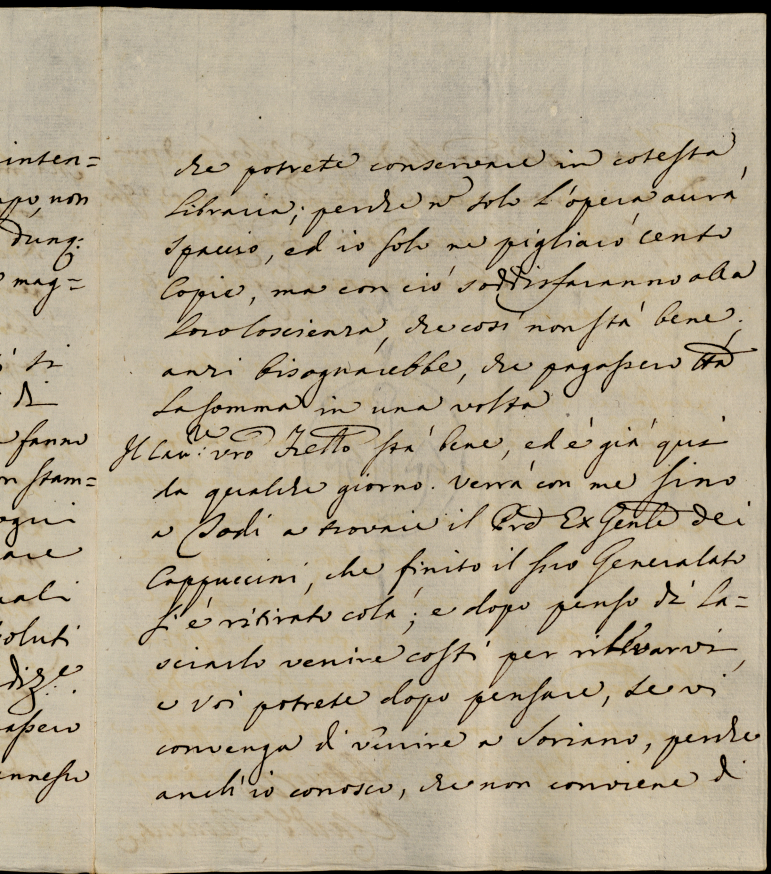 inten=
apo, non
dunq:
mag=
si
di
fanno
stam=
ogni
are
uali
soluti
dize
assero
ennesso
che potrete conservare in cotesta
Libraria; perche nõ solo l'opera aura
spaccio, ed io solo ne pigliarò cento
Copie, ma con ciò soddisfaranno alla
loro Coscienza, che così non stà bene;
anzi bisognarebbe, che pagassero ttã
la somma in una volta
Il Cav.re vrõ Frello stà bene, ed è già quì
da qualche giorno. Verrà con me sino
a Todi a trovare il Prẽ Ex Genle dei
Cappuccini, che finito il suo Generalato
si è ritirato colà; e dopo penso di La=
sciarlo venire costì per rillevarvi,
e voi potrete dopo pensare, se vi
convenga di venire a Soriano, perche
anch'io conosco, che non conviene di